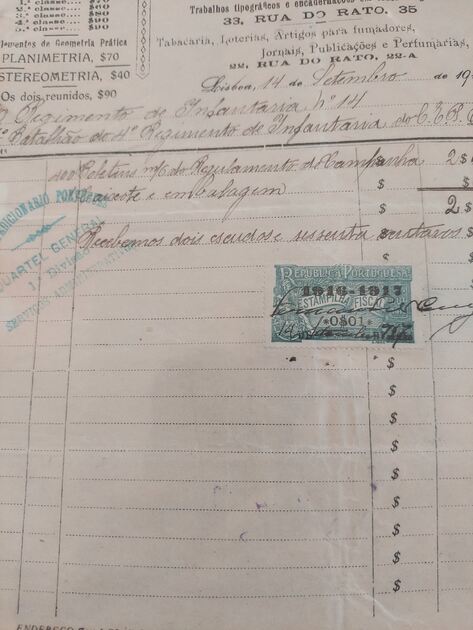 1.ª classe.... $60
2.ª classe.... $60
3.ª classe.... $80
4.ª classe.... $90
5.ª classe.... $90
Elementos de Geometria Prática
PLANIMETRIA, $70
STEREOMETRIA, $40
Os dois reunidos, $90
Trabalhos tipográficos e encadernações em
33, RUA DO RATO, 35
Tabacaria, Loterias, Artigos para fumadores,
Jornais, Publicações e Perfumarias,
22, RUA DO RATO, 22-A
Lisboa, 14 de Setembro de 19
Regimento de Infantaria nº 14
Batalhão do 4º Regimento de Infantaria do C.E.P.
400 Boletins m/6 do Regulamento de Campanha 2$
Caixote e embalagem $
2$
Recebemos dois escudos e sessenta centavos
EXPEDICIONARIO PORTUGUÊS
QUARTEL GENERAL
1.ª Divisão
SERVIÇOS ADMINISTRATIVOS
REPUBLICA PORTUGUESA
1916-1917
ESTAMPILHA FISCAL
*0$01*
14 Setembro 917
$
$
$
$
$
$
$
$
$